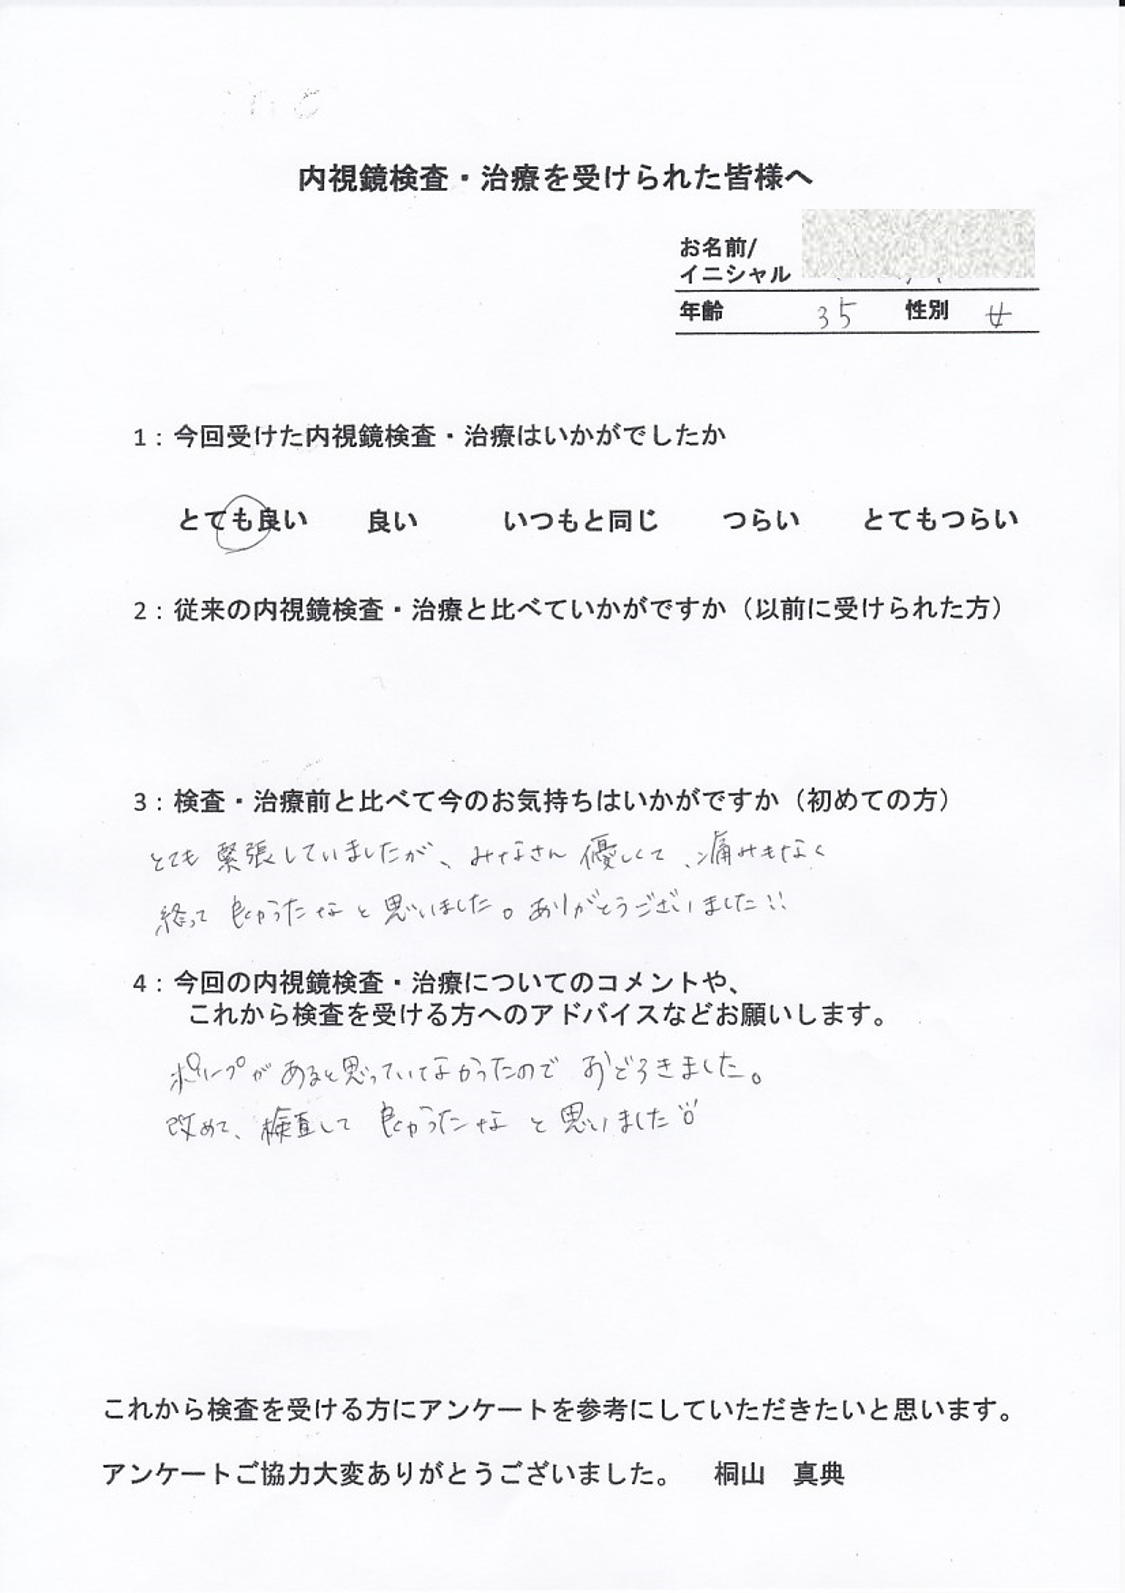 内視鏡検査・治療を受けられた皆様へ
お名前/
イニシャル
年齢 35 性別 女
1：今回受けた内視鏡検査・治療はいかがでしたか
とても良い 良い いつもと同じ つらい とてもつらい
2：従来の内視鏡検査・治療と比べていかがですか（以前に受けられた方）
3：検査・治療前と比べて今のお気持ちはいかがですか（初めての方）
とても緊張していましたが、みなさん優しくて、痛みもなく
終って良かったなと思いました。ありがとうございました!!
4：今回の内視鏡検査・治療についてのコメントや、
これから検査を受ける方へのアドバイスなどお願いします。
ポリープがあると思っていなかったので おどろきました。
改めて、検査して 良かったなと思いました
これから検査を受ける方にアンケートを参考にしていただきたいと思います。
アンケートご協力大変ありがとうございました。 桐山 真典